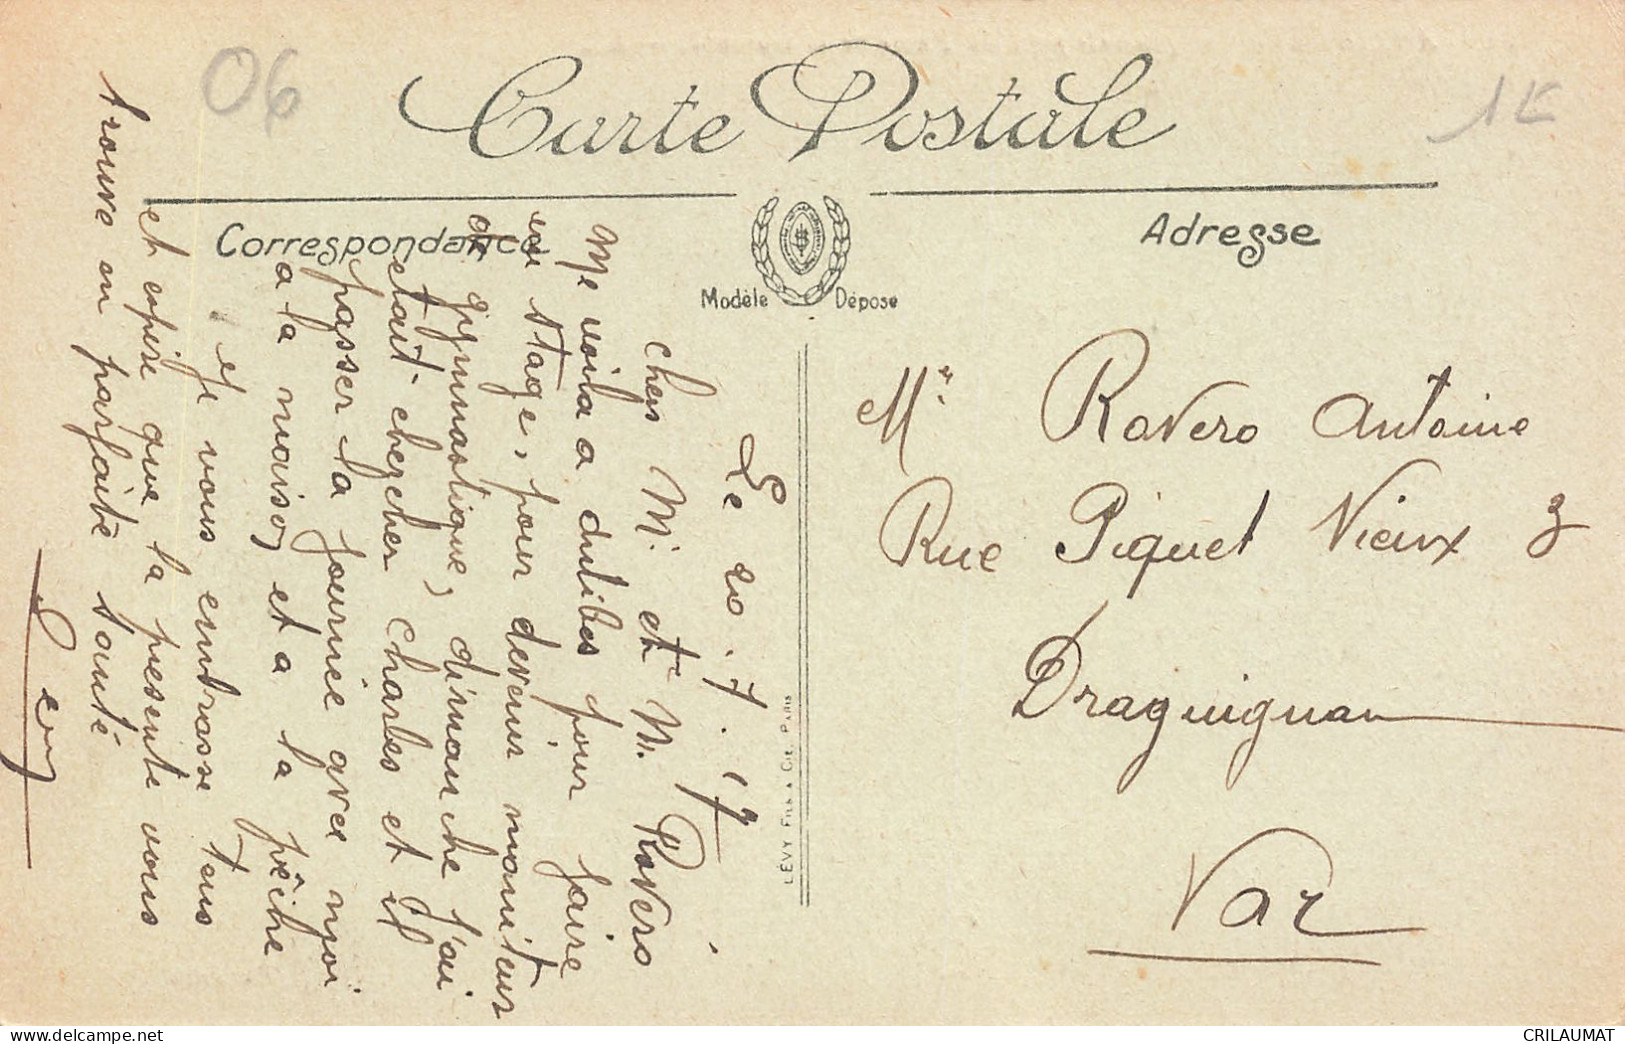 06
1€
Carte Postale
Correspondance
Adresse
Modèle Déposé
LÉVY Fils & Cie, PARIS
Le 20.7.17
Chers Mr. et M. Rovero
Me voila a antibes pour faire
un stage, pour devenir moniteur
de gymnastique, dimanche j'ai
etait chercher Charles et il
passer la journée avec moi
a la maison et a la pêche
Je vous embrasse tous
et espère que la presente vous
trouve en parfaite santé
Leon
Mr. Rovero Antoine
Rue Piquet Vieux 3
Draguignan
Var
CRILAUMAT